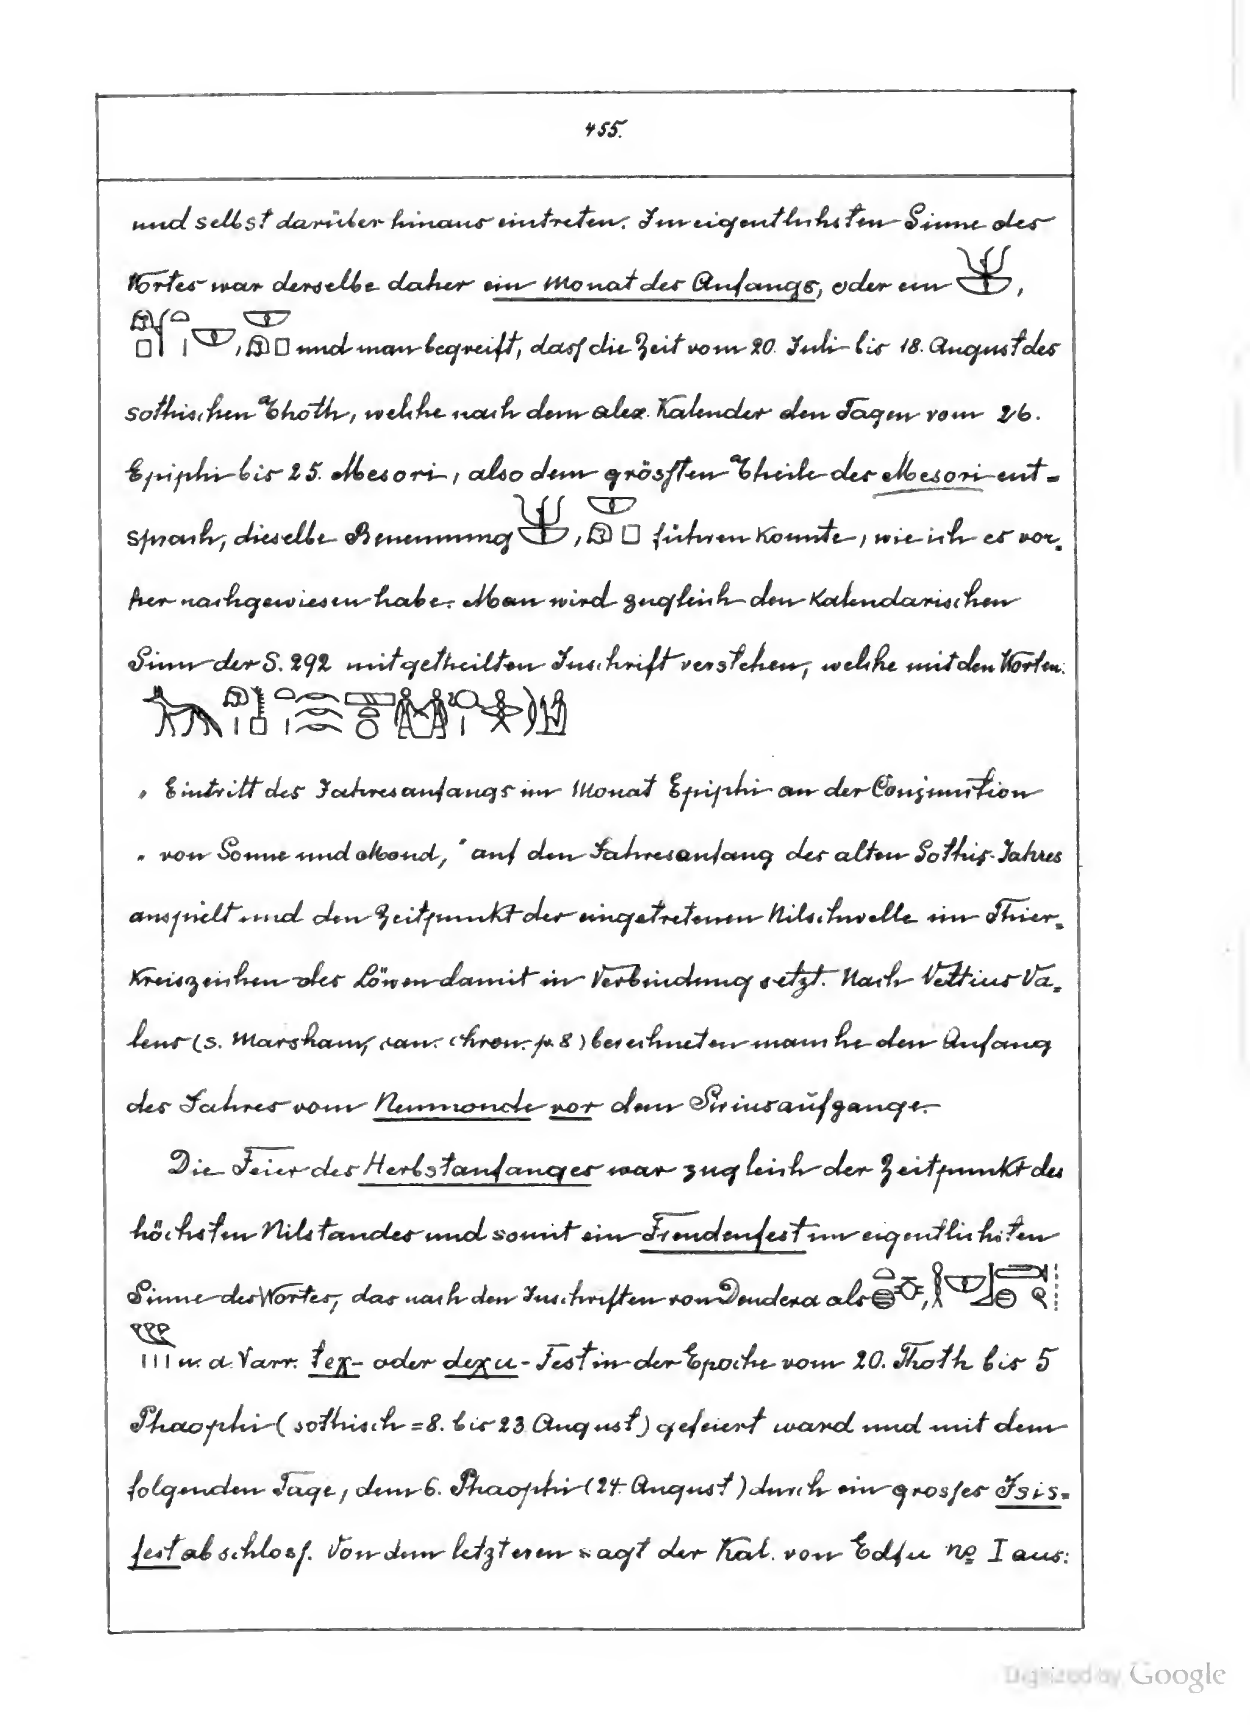 455.
und selbst darüber hinaus eintreten. Im eigentlichsten Sinne des
Wortes war derselbe daher ein Monat des Anfangs, oder ein ,
, und man begreift, dass die Zeit vom 20. Juli bis 18. August des
sothischen Thoth, welche nach dem alex. Kalender den Tagen vom 26.
Epiphi bis 25. Mesori, also dem grössten Theile des Mesori ent-
sprach, dieselbe Benennung , führen konnte, wie ich es vor-
her nachgewiesen habe. Man wird zugleich den Kalendarischen
Sinn der S. 292 mitgetheilten Inschrift verstehen, welche mit den Worten:
„ Eintritt des Jahresanfangs im Monat Epiphi an der Conjunction
„ von Sonne und Mond, " auf den Jahresanfang des alten Sothis-Jahres
anspielt und den Zeitpunkt der eingetretenen Nilschwelle im Thier-
Kreiszeichen des Löwen damit in Verbindung setzt. Nach Vettius Va-
lens (s. Marsham, can. chron. p. 8) berechneten manche den Anfang
des Jahres vom Neumonde vor dem Siriusaufgange.
Die Feier des Herbstanfanges war zugleich der Zeitpunkt des
höchsten Nilstandes und somit ein Freudenfest im eigentlichsten
Sinne des Wortes, das nach den Inschriften von Dendera als ,
u. a. Varr. teχ- oder deχu-Fest in der Epoche vom 20. Thoth bis 5
Phaophi (sothisch = 8. bis 23 August) gefeiert ward und mit dem
folgenden Tage, dem 6. Phaophi (24. August) durch ein grosses Isis-
fest abschloss. Von dem letzteren sagt der Kal. von Edfu no I aus:
Digitized by Google